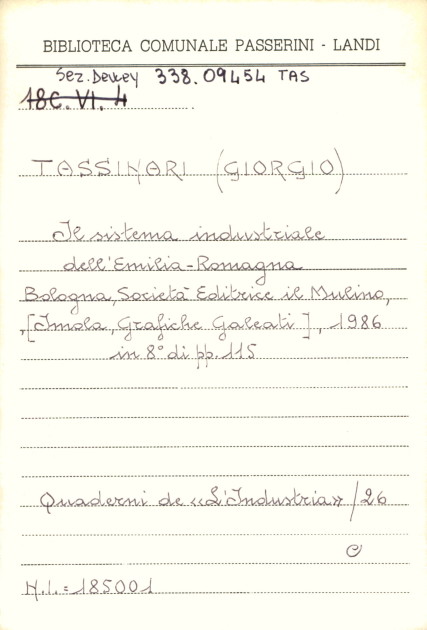 BIBLIOTECA COMUNALE PASSERINI - LANDI
Sez. Dewey 338.09454 TAS
18C. VI. 4
TASSINARI (GIORGIO)
Il sistema industriale
dell'Emilia-Romagna
Bologna, Società Editrice il Mulino,
[Imola, Grafiche Galeati], 1986
in 8° di pp. 115
Quaderni de «L'Industria» /26
C
N.I. = 185001